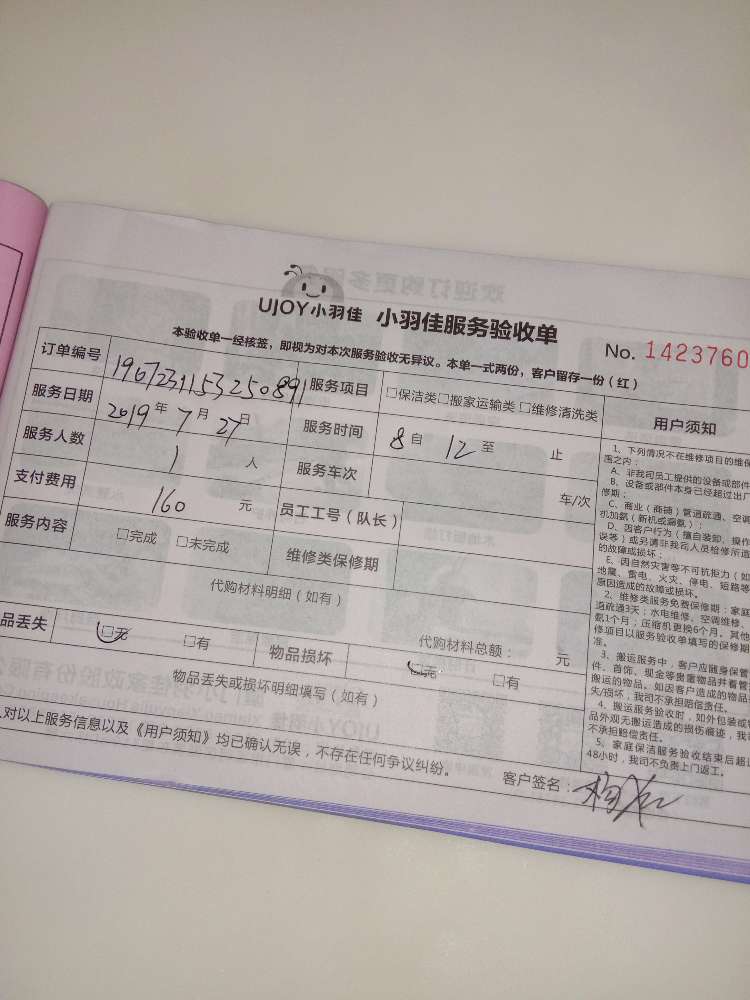 UJOY小羽佳 小羽佳服务验收单
No. 1423760
本验收单一经核签，即视为对本次服务验收无异议。本单一式两份，客户留存一份（红）
订单编号 1967231153250891 服务项目 □保洁类□搬家运输类□维修清洗类
服务日期 2019 年 7 月 27 日 服务时间 8 自 12 至 止
服务人数 1 人 服务车次 车/次
支付费用 160 元 员工工号（队长）
服务内容 □完成 □未完成 维修类保修期
代购材料明细（如有）
代购材料总额： 元
品丢失 □无 □有 物品损坏 □无 □有
物品丢失或损坏明细填写（如有）
对以上服务信息以及《用户须知》均已确认无误，不存在任何争议纠纷。
客户签名：
用户须知
1、下列情况不在维修项目的维保
围之内：
A、非我司员工提供的设备或部件
B、设备或部件本身已经超过出厂
修期；
C、商业（商铺）管道疏通、空调
机加氨（新机或漏氨）；
D、因客户行为（擅自装卸、操作
误等）或另请非我司人员检修所造
的故障或损坏；
E、因自然灾害等不可抗拒力（如
地震、雷电、火灾、停电、短路等
原因造成的故障或损坏。
2、维修类服务免费保修期：家庭
道疏通3天；水电维修、空调维修、
氨1个月；压缩机更换6个月。其他
修项目以服务验收单填写的保修期
准。
3、搬运服务中，客户应随身保管
件、首饰、现金等贵重物品并看管
搬运的物品。如因客户造成的物品
失/损坏，我司不承担赔偿责任。
4、搬运服务验收时，如外包装或
品外观无搬运造成的损伤痕迹，我
不承担赔偿责任。
5、家庭保洁服务验收结束后超过
48小时，我司不负责上门返工。